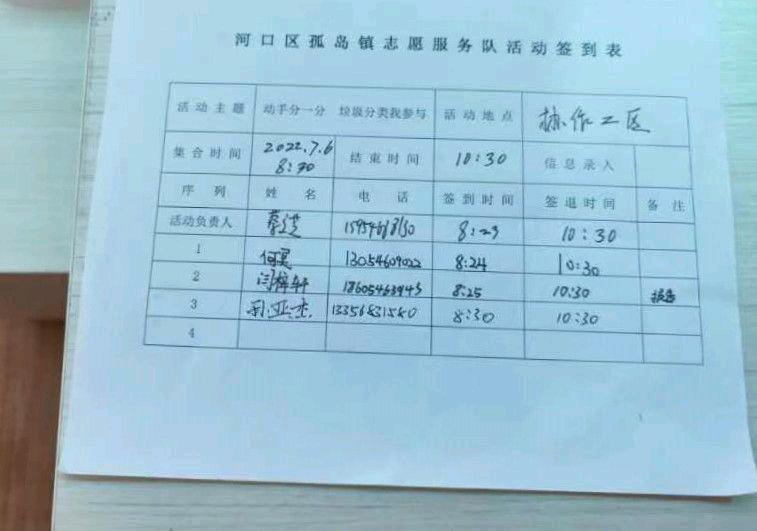 河口区孤岛镇志愿服务队活动签到表
活动主题 动手分一分 垃圾分类我参与 活动地点 协作工区
集合时间 2022.7.6 8:30 结束时间 10:30 信息录入
序列 姓名 电话 签到时间 签退时间 备注
活动负责人 8:23 10:30
1 13054609022 8:24 10:30
2 闫梓轩 18605463943 8:25 10:30
3 13356831580 8:30 10:30
4